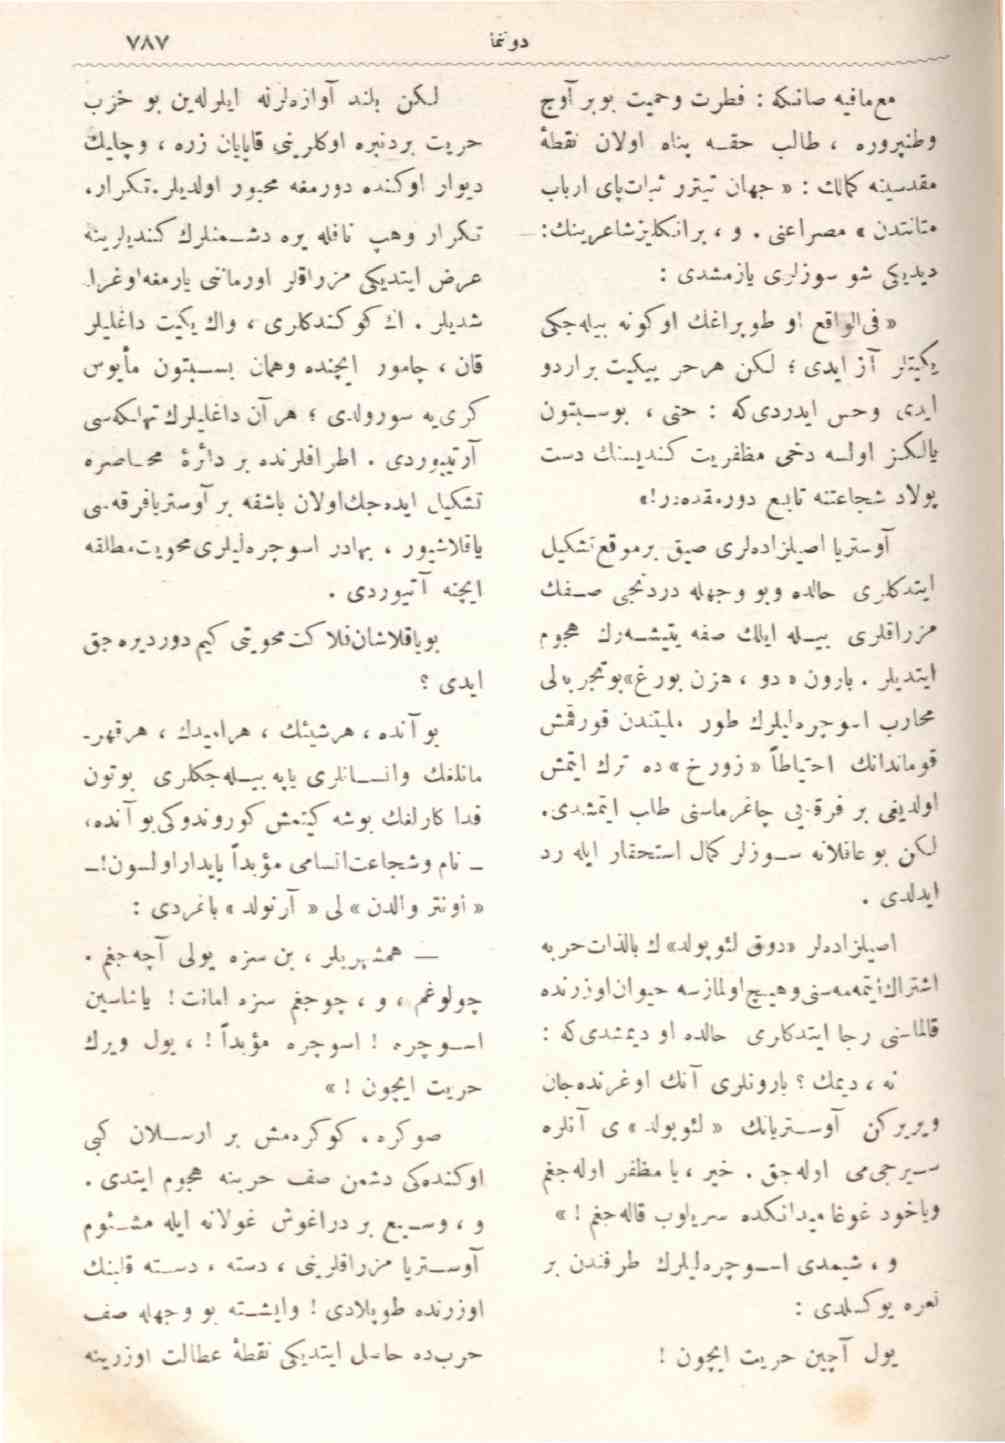 دوننما
٧٨٧
مع مافیه صانکه : فطرت وحمیت بو بر آوج
وطنپروره ، طالب حقـه پناه اولان نقطهٔ
مقدسینه کمالك : « جهان تیترر ثبات‌پای ارباب
متانتدن » مصراعنی . و ، بر انکلیز شاعرینك :
دیدیکی شو سوزلری یازمشدی :
« فی‌الواقع او طوپراغك اوکونه بیله‌جکی
یکیتلر آز ایدی ؛ لکن هر حر ییکیت بر اردو
ایدی وحس ایدردی‌که : حتی ، بوسبتون
یالکز اولسه دخی مظفریت کندیسنك دست
پولاد شجاعتنه تابع دورمقده‌در! »
آوستریا اصیلزاده‌لری صیق بر موقع تشکیل
ایتدکلری حالده وبو وجهله دردنجی صفك
مزراقلری بیله ایلك صفه یتیشه‌رك هجوم
ایتدیلر . بارون « دو ، هزن بورغ » بو تجربه‌لی
محارب اسوچره‌لیلرك طور ملیتندن قورقمش
قوماندانك احتیاطاً « زورخ » ده ترك ایتمش
اولدیغی بر فرقه‌یی چاغرماسنی طلب ایتمشدی.
لکن بو عاقلانه سوزلر کمال استحقار ایله رد
ایدلدی .
اصیلزاده‌لر « دوق لئوپولد » ك بالذات حربه
اشتراك ایتمه‌مه‌سنی وهیچ اولمازسه حیوان اوزرنده
قالماسنی رجا ایتدکلری حالده او دیمشدی‌که :
نه ، دیمك ؟ بارونلری آنك اوغرنده جان
ویریرکن آوستریانك « لئوپولد » ی آنلره
سیرجی‌می اوله‌جق . خیر ، یا مظفر اوله‌جغم
ویاخود غوغا میداننکده سریلوب قاله‌جغم ! »
و ، شیمدی اسوچره‌لیلرك طرفندن بر
نعره یوکسلدی :
یول آچین حریت ایچون !
لکن بلند آوازه‌لرله ایلرله‌ین بو حزب
حریت بردنبره اوکلرینی قاپایان زره ، وچلیك
دیوار اوکنده دورمغه مجبور اولدیلر. تکرار،
تکرار وهپ نافله یره دشمنلرك کندیلرینه
عرض ایتدیکی مزراقلر اورمانی یارمغه اوغرا-
شدیلر . اك کوکندکلری ، واك یکیت داغلیلر
قان ، چامور ایچنده وهمان بسبتون مأیوس
کری‌یه سورولدی ؛ هر آن داغلیلرك تهلکه‌سی
آرتییوردی . اطرافلرنده بر دائرهٔ محاصره
تشکیل ایده‌جك اولان باشقه بر آوستریا فرقه‌سی
یاقلاشیور ، بهادر اسوچره‌لیلری محویت مطلقه
ایچنه آتیوردی .
بو یاقلاشان فلاکت محویتی کیم دوردیره‌جق
ایدی ؟
بو آنده ، هر شیئك ، هر امیدك ، هر قهر-
مانلغك وانسانلری یاپه بیله‌جکلری بوتون
فداکارلغك بوشه کیتمش کوروندوکی بو آنده،
ــ نام وشجاعت انسامی مؤبداً پایدار اولسون! ــ
« اونتر والدن » لی « آرنولد » باغردی :
— همشهریلر ، بن سزه یولی آچه‌جغم .
چولوغم ، و ، چوجغم سزه امانت ! یاشاسین
اسوچره ! اسوچره مؤبداً ! ، یول ویرك
حریت ایچون ! »
صوکره . کوکره‌مش بر ارسلان کبی
اوکنده‌کی دشمن صف حربنه هجوم ایتدی .
و ، وسیع بر دراغوش غولانه ایله مشئوم
آوستریا مزراقلرینی ، دسته ، دسته قلبنك
اوزرنده طوپلادی ! وایشته بو وجهله صف
حربده حاصل ایتدیکی نقطهٔ عطالت اوزرینه